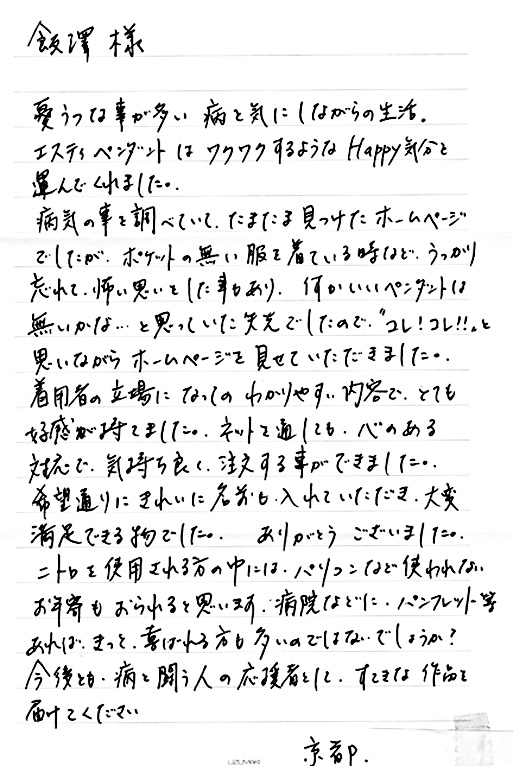 飯澤 様
憂うつな事が多い 病を気にしながらの生活。
エスティペンダントは ワクワクするような Happy気分を
運んでくれました。
病気の事を調べていて、たまたま見つけたホームページ
でしたが、ポケットの無い服を着ている時など、うっかり
忘れて、怖い思いをした事もあり、何かいいペンダントは
無いかな…と思っていた矢先でしたので、"コレ!コレ!!"と
思いながら ホームページを見せていただきました。
着用者の立場になっての わかりやすい内容で、とても
好感が持てました。ネットを通しても、心のある
対応で、気持ち良く、注文する事ができました。
希望通りにきれいに名前も、入れていただき、大変
満足できる物でした。 ありがとうございました。
ニトロを使用される方の中には、パソコンなど使われない
お年寄も おられると思います。病院などに、パンフレット等
あれば、きっと、喜ばれる方も多いのではないでしょうか?
今後とも、病と闘う人の応援者として、すてきな作品を
届けてください
京都 P.
UZUMAKI